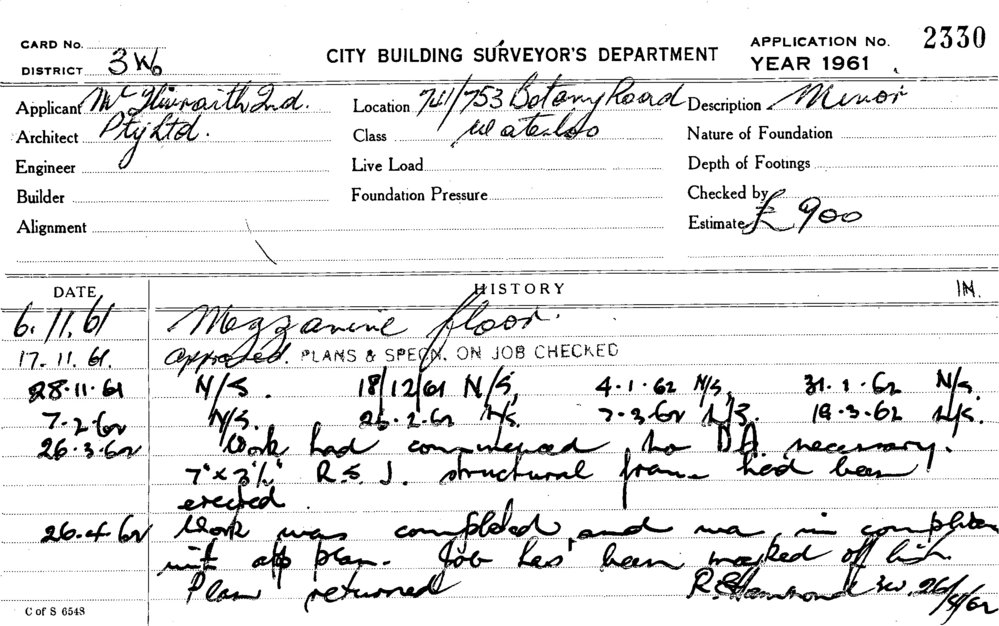 CARD No.
DISTRICT 3W6
CITY BUILDING SURVEYOR'S DEPARTMENT
APPLICATION No. 2330
YEAR 1961
Applicant Ind. Location 741/753 Botany Road Description Minor
Architect Pty Ltd. Class Waterloo Nature of Foundation
Engineer Live Load Depth of Footings
Builder Foundation Pressure Checked by
Alignment Estimate £900
DATE HISTORY IN.
6.11.61 Mezzanine floor.
17.11.61. approved. PLANS & SPECN. ON JOB CHECKED
28.11.61 N/S. 18/12/61 N/S, 4.1.62 N/S, 31.1.62 N/S.
7.2.62 N/S. 26.2.62 N/S. 7.3.62 N/S. 19.3.62 N/S.
26.3.62 Work had commenced no D.A. necessary.
7" x 3½" R.S.J. structural frame had been
erected.
26.4.62 Work was completed and was in
with app plan. Job has been marked off list
Plan returned R. Hammond 26/4/62
C of S 6548